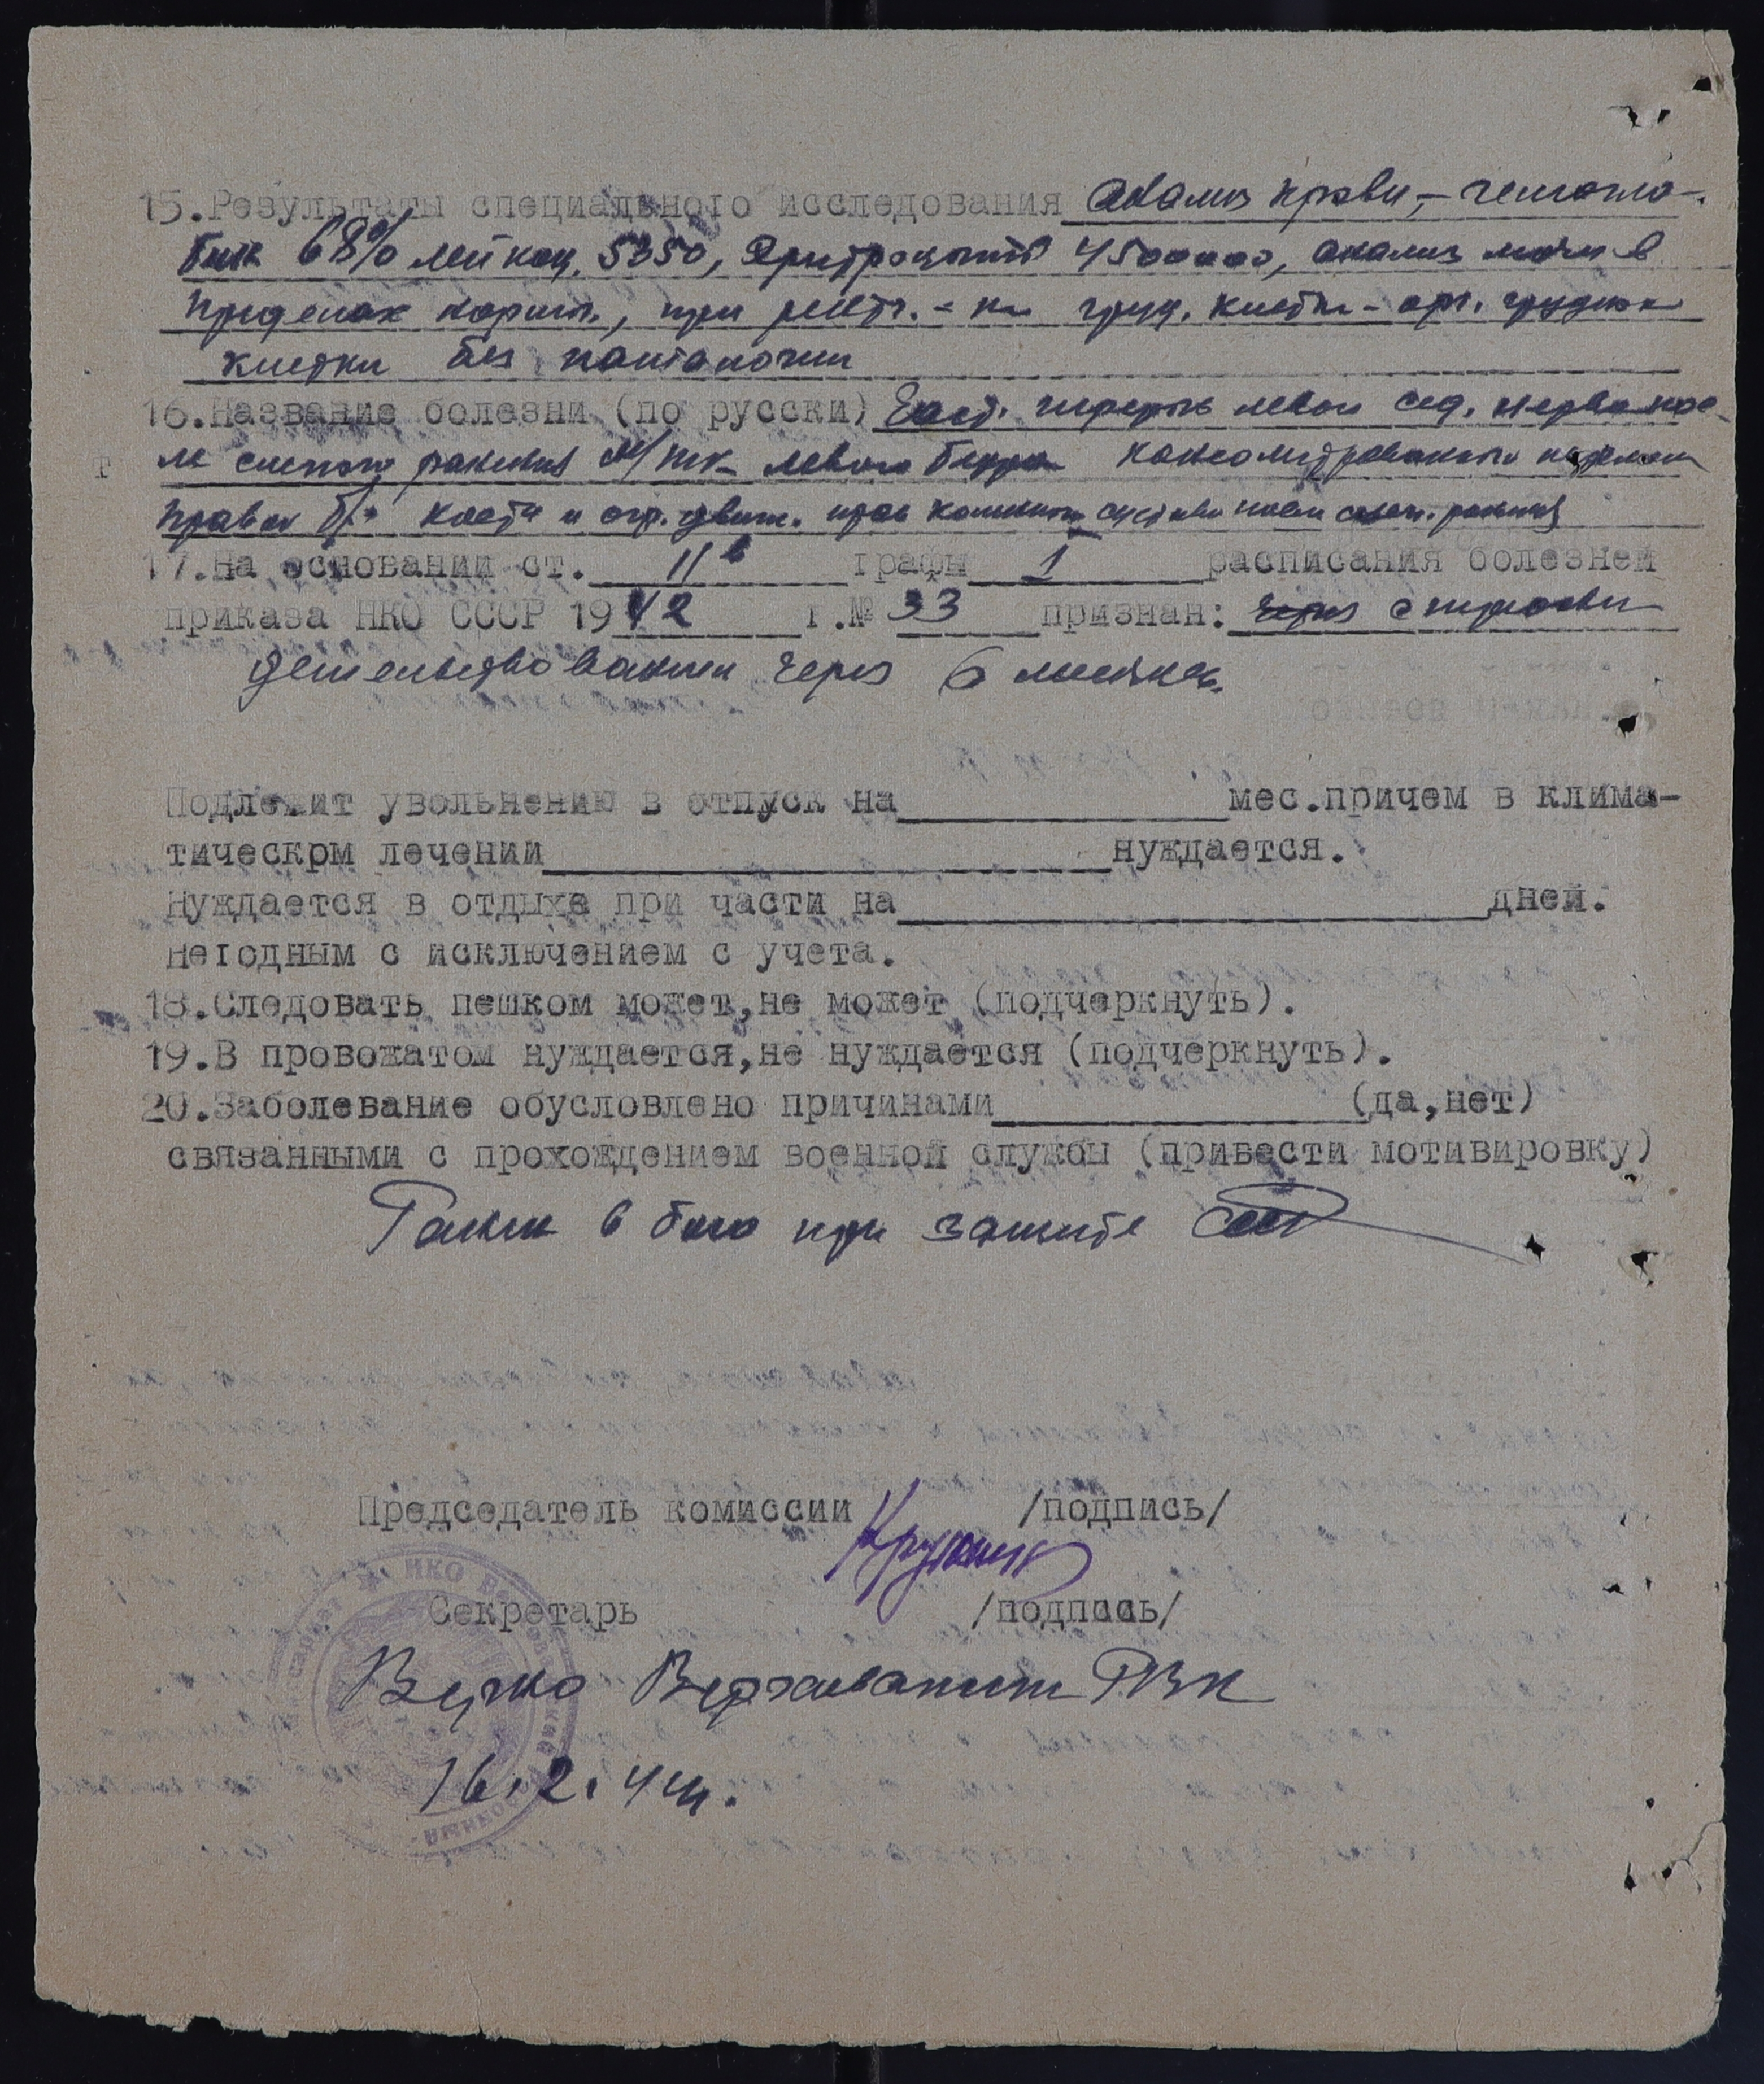 15.Результаты специального исследования Анализ крови,- гемогло-
бин 68% лейкоц. 5350, Эритроциты 4500000, анализ мочи в
пределах норм., при рентг.- и груд. клетки - орг. грудной
клетки без патологии
16.Название болезни (по русски) Част. перерыв левого сед. нерва после
слепого ранения м/тк левого бедра консолидированный перелом
правой б/б кости и огр. движ. прав коленного сустава после слеп. ранения
17.На основании ст. 11в графы 1 расписания болезней
приказа НКО СССР 1942 г.№ 33 признан: с переосви-
детельствованием через 6 месяцев.
Подлежит увольнению в отпуск на мес.причем в клима-
тическрм лечении нуждается.
Нуждается в отдыхе при части на дней.
Негодным с исключением с учета.
18.Следовать пешком может,не может (подчеркнуть).
19.В провожатом нуждается,не нуждается (подчеркнуть).
20.Заболевание обусловлено причинами (да,нет)
связанными с прохождением военной службы (привести мотивировку)
Ранен в бою при защите СССР
Председатель комиссии /подпись/
Секретарь /подпись/
Верно РВК
16.2.44г.